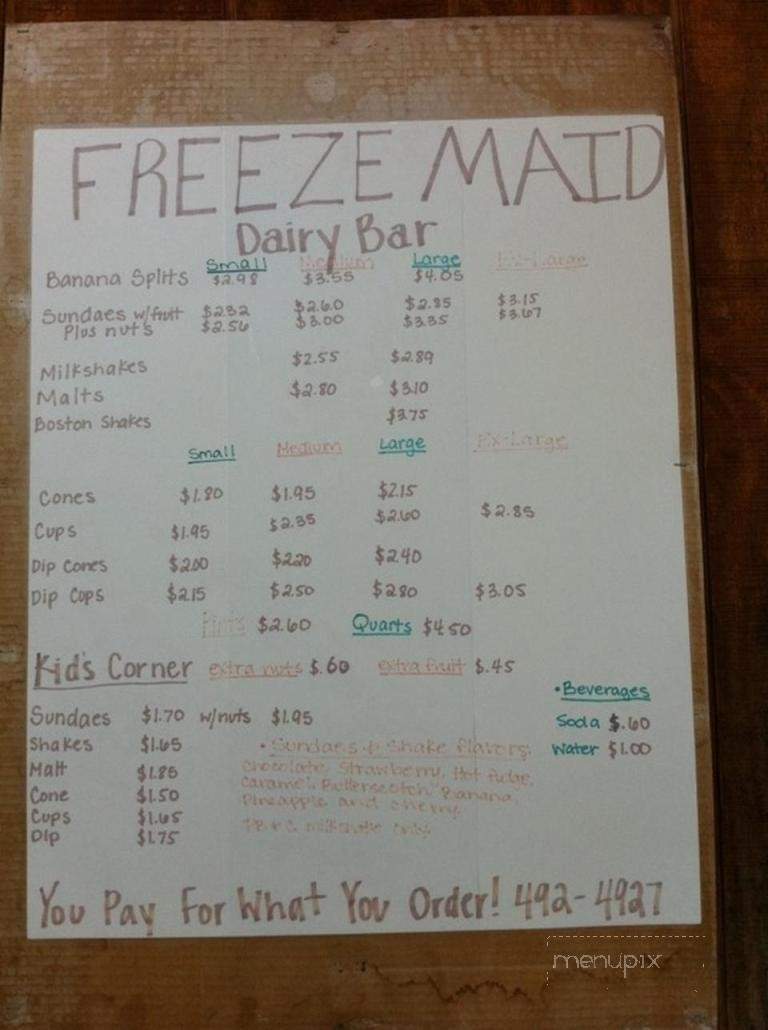 FREEZE MAID
Dairy Bar
Small Medium Large Ex-Large
Banana Splits $2.98 $3.55 $4.05
Sundaes w/fruit $2.32 $2.60 $2.85 $3.15
Plus nuts $2.56 $3.00 $3.35 $3.67
Milkshakes $2.55 $2.89
Malts $2.80 $3.10
Boston Shakes $3.75
Small Medium Large Ex-Large
Cones $1.80 $1.95 $2.15
Cups $1.95 $2.35 $2.60 $2.85
Dip Cones $2.00 $2.20 $2.40
Dip Cups $2.15 $2.50 $2.80 $3.05
Pints $2.60 Quarts $4.50
Kid's Corner extra nuts $.60 extra fruit $.45
Sundaes $1.70 w/nuts $1.95
Shakes $1.65
Malt $1.85
Cone $1.50
Cups $1.65
Dip $1.75
• Beverages
Soda $.60
Water $1.00
• Sundaes & Shake flavors:
Chocolate, Strawberry, Hot fudge,
Caramel, Butterscotch, Banana,
Pineapple and cherry
milkshake only
You Pay For What You Order! 492-4927
menupix